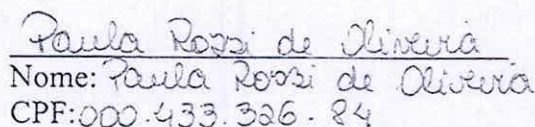 Paula Rossi de Oliveira
Nome: Paula Rossi de Oliveira
CPF: 000.433.326-84